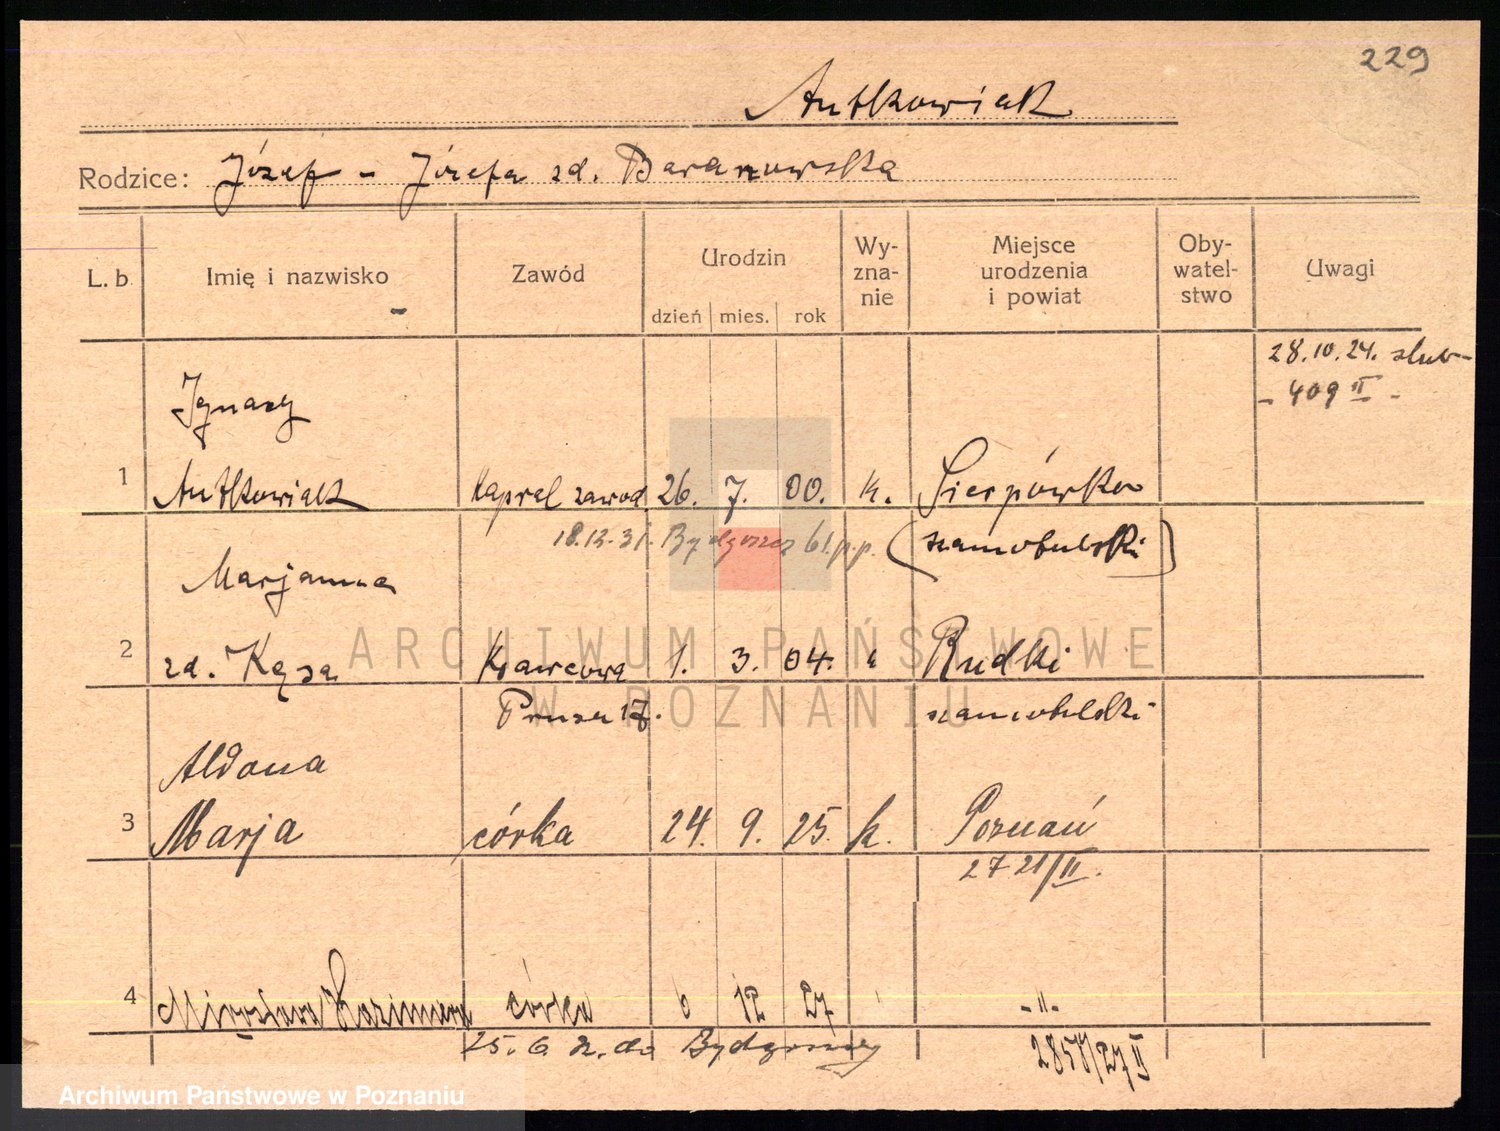 229
Antkowiak
Rodzice: Józef - Józefa zd. Baranowska
L. b. Imię i nazwisko Zawód Urodzin dzień mies. rok Wy-zna-nie Miejsce urodzenia i powiat Oby-watel-stwo Uwagi
28.10.24. ślub
- 409 II -
Ignacy
1 Antkowiak Kapral zawod. 26. 7. 00. k. Sierpówko
18.12.31. Bydgoszcz 61.p.p. (szamotulski)
Marjanna
2 zd. Kęsa Krawcowa 1. 3. 04. " Rudki
Prusa 17. szamotulski
Aldona
3 Marja córka 24. 9. 25. k. Poznań
2721/II.
4 Mirosława Kazimiera córka 6 12 27 -"-
25. 6. do Bydgoszczy 2857/27 II
ARCHIWUM PAŃSTWOWE
W POZNANIU
Archiwum Państwowe w Poznaniu